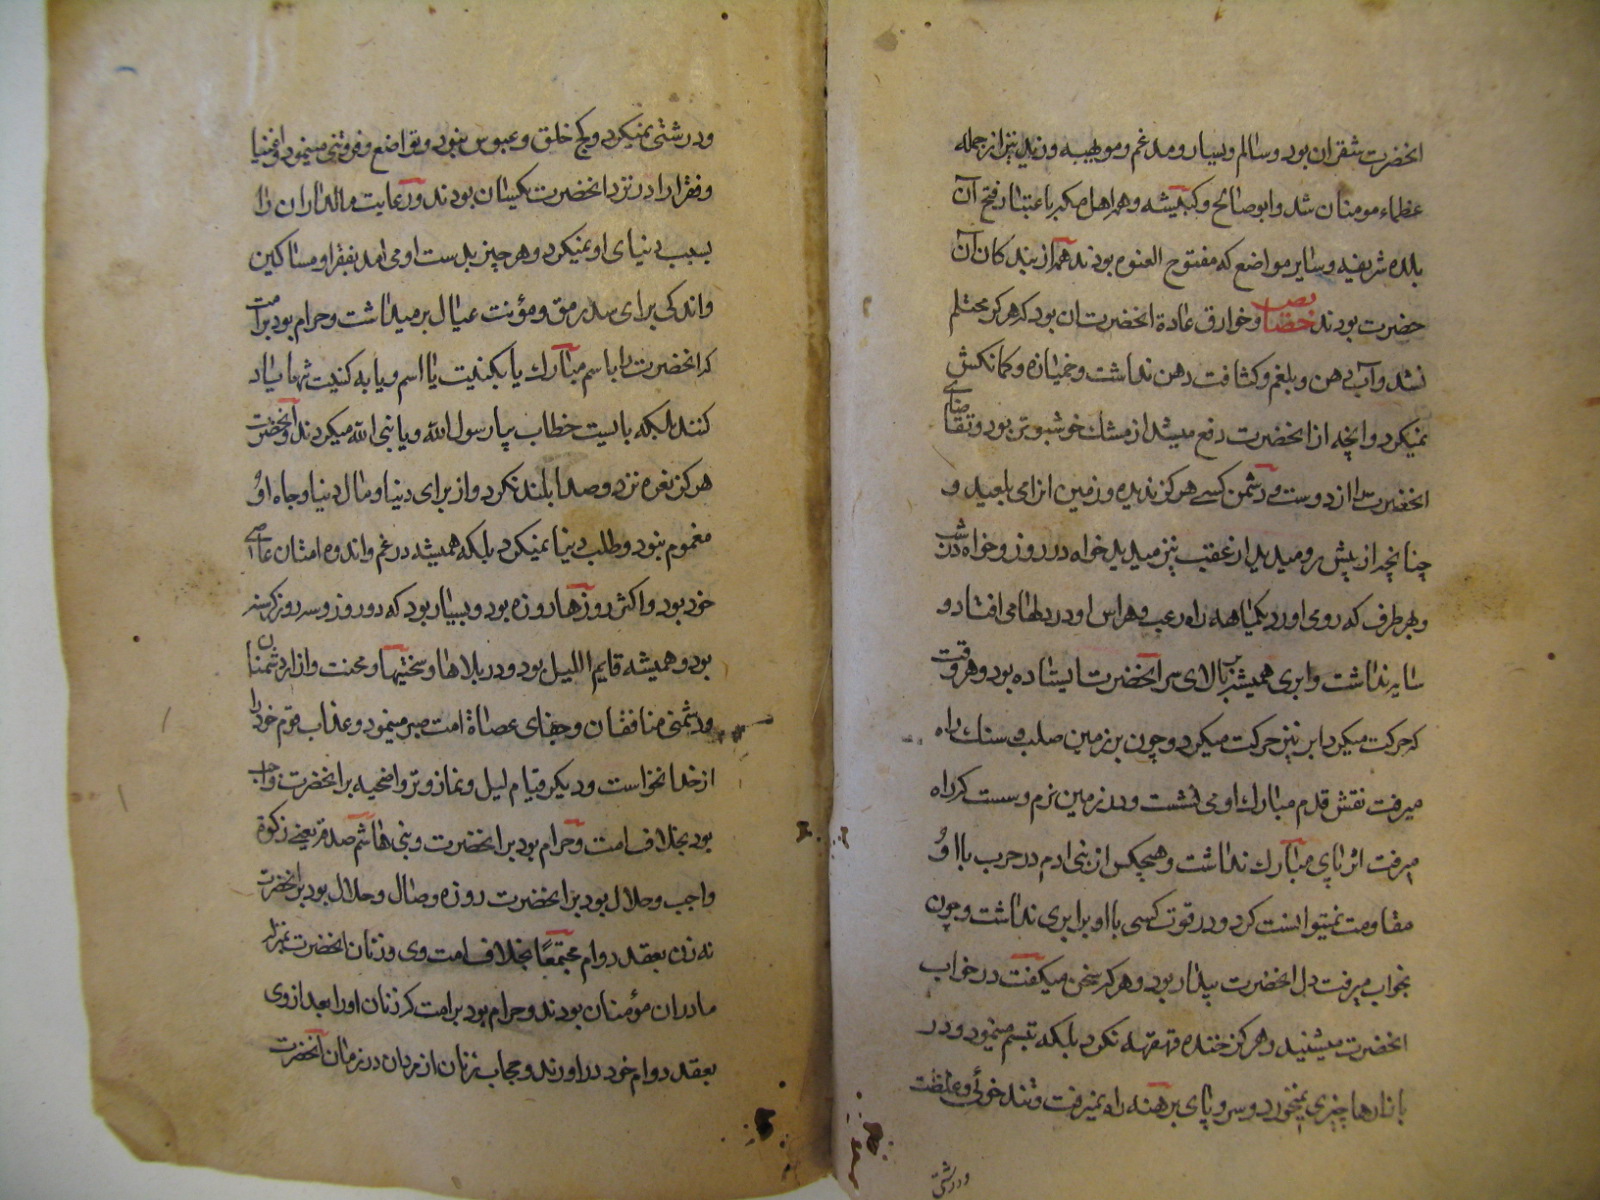 انحضرت شقران بود و سالم و یسار و مدغم و مویهبه و زید نیز از جمله
عظماء مومنان شد و ابوصالح و کبیشه و همه اهل مکه باعتبار فتح آن
بلده شریفه و سایر مواضع که مفتوح العنوه بودند همه از بندکان آن
حضرت بودند خصایص و خوارق عادة انحضرت ان بود که هرکز محتلم
نشد و آب دهن و بلغم و کثافت دهن نداشت و خمیازه و کمانکش
نمیکرد و انچه از انحضرت دفع میشد از مشک خوشبوتر بود و تقاضای
انحضرت را از دوست و دشمن کسے هرکز ندیده و زمین انرا می بلعید و
چنانچه از پیش رو میدید از عقب نیز میدید خواه در روز و خواه در شب
و بهر طرف که روی اورد یکماهه راه رعب و هراس او در دلها می افتاد و
سایه نداشت و ابری همیشه بر بالای سر انحضرت ایستاده بود و هر وقت
که حرکت میکرد ابر نیز حرکت میکرد و چون بر زمین صلب و سنک راه
میرفت نقش قدم مبارک او می نشست و در زمین نرم و سست که راه
میرفت اثر پای مبارک نداشت و هیچکس از بنی ادم در حرب با او
مقاومت نمیتوانست کرد و در قوت کسی با او برابری نداشت و چون
بخواب میرفت دل انحضرت بیدار بود و هرکه سخن میکفت در خواب
انحضرت میشنید و هرکز خنده قهقهه نکرد بلکه تبسم مینمود و در
بازارها چیزی نمیخورد و سر و پای برهنه راه نمیرفت و تند خوئی و غلظت
و درشتی
و درشتی نمیکرد و کج خلق و عبوس نبود و تواضع و فروتنی مینمود و اغنیا
و فقرا را در نزد انحضرت یکسان بودند و رعایت مالداران را
بسبب دنیای او نمیکرد و هر چیز بدست او می امد بفقرا و مساکین
و اندکی برای سد رمق و مؤنت عیال بر میداشت و حرام بود بر امت
که انحضرت را باسم مبارک یا بکنیت یا اسم و یا به کنیت تنها یاد
کنند بلکه بایست خطاب بیا رسول الله و یا نبی الله میکردند و آنحضرت
هرکز نعره نزد و صدا بلند نکرد و از برای دنیا و مال دنیا و جاه او
مغموم نبود و طلب دنیا نمیکرد بلکه همیشه در غم و اندوه امتان عاصی
خود بود و اکثر روزها روزه بود و بسیار بود که دو روز و سه روز کرسنه
بود و همیشه قایم اللیل بود و در بلاها و سختیها و محنت و ازار دشمنان
و دشمنی منافقان و جفای عصاة امت صبر مینمود و عذاب قوم خود را
از خدا نخواست و دیکر قیام لیل و نماز وتر و اضحیه بر انحضرت واجب
بود بخلاف امت و حرام بود بر انحضرت و بنی هاشم صدقه یعنے زکوة
واجب و حلال بود بر انحضرت روزه وصال و حلال بود بر انحضرت
نه زن بعقد دوام مجتمعًا بخلاف امت وی و زنان انحضرت بمنزله
مادران مؤمنان بودند و حرام بود بر امت که زنان او را بعد از وی
بعقد دوام خود در اورند و حجاب زنان از مردان در زمان آنحضرت